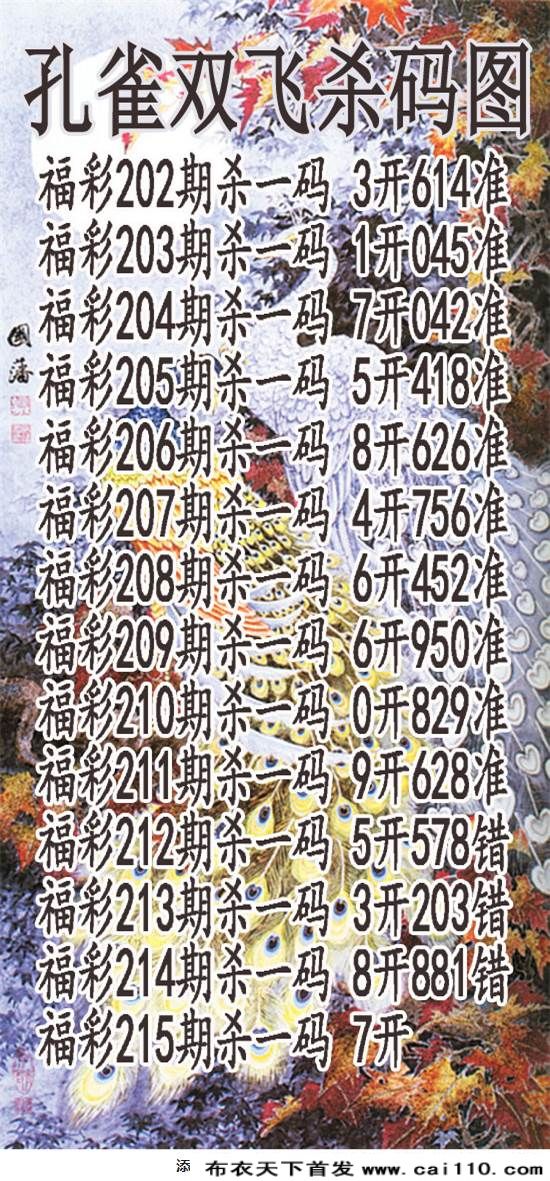 孔雀双飞杀码图
福彩202期杀一码 3开614准
福彩203期杀一码 1开045准
福彩204期杀一码 7开042准
福彩205期杀一码 5开418准
福彩206期杀一码 8开626准
福彩207期杀一码 4开756准
福彩208期杀一码 6开452准
福彩209期杀一码 6开950准
福彩210期杀一码 0开829准
福彩211期杀一码 9开628准
福彩212期杀一码 5开578错
福彩213期杀一码 3开203错
福彩214期杀一码 8开881错
福彩215期杀一码 7开
國藩
添 布衣天下首发 www.cai110.com